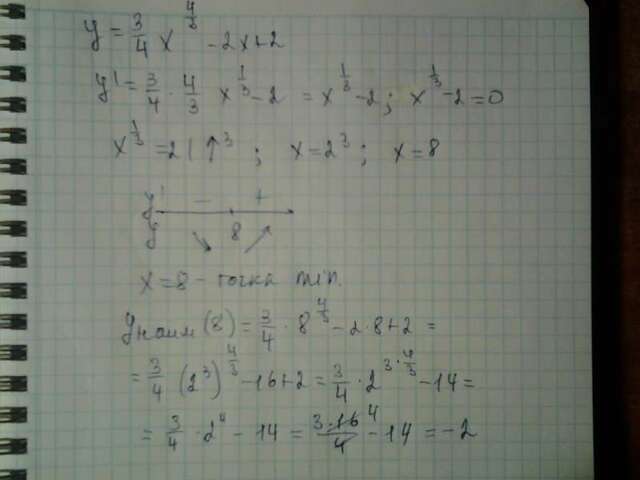 y = 3/4 x^4/3 - 2x+2
y' = 3/4 · 4/3 x^1/3 - 2 = x^1/3 - 2; x^1/3 - 2 = 0
x^1/3 = 2 | ↑^3 ; x = 2^3 ; x = 8
y' - +
y 8
x = 8 - точка min.
yнаим (8) = 3/4 · 8^4/3 - 2 · 8 + 2 =
= 3/4 (2^3)^4/3 - 16+2 = 3/4 · 2^3·4/3 - 14 =
= 3/4 · 2^4 - 14 = 3·16^4/4 - 14 = -2